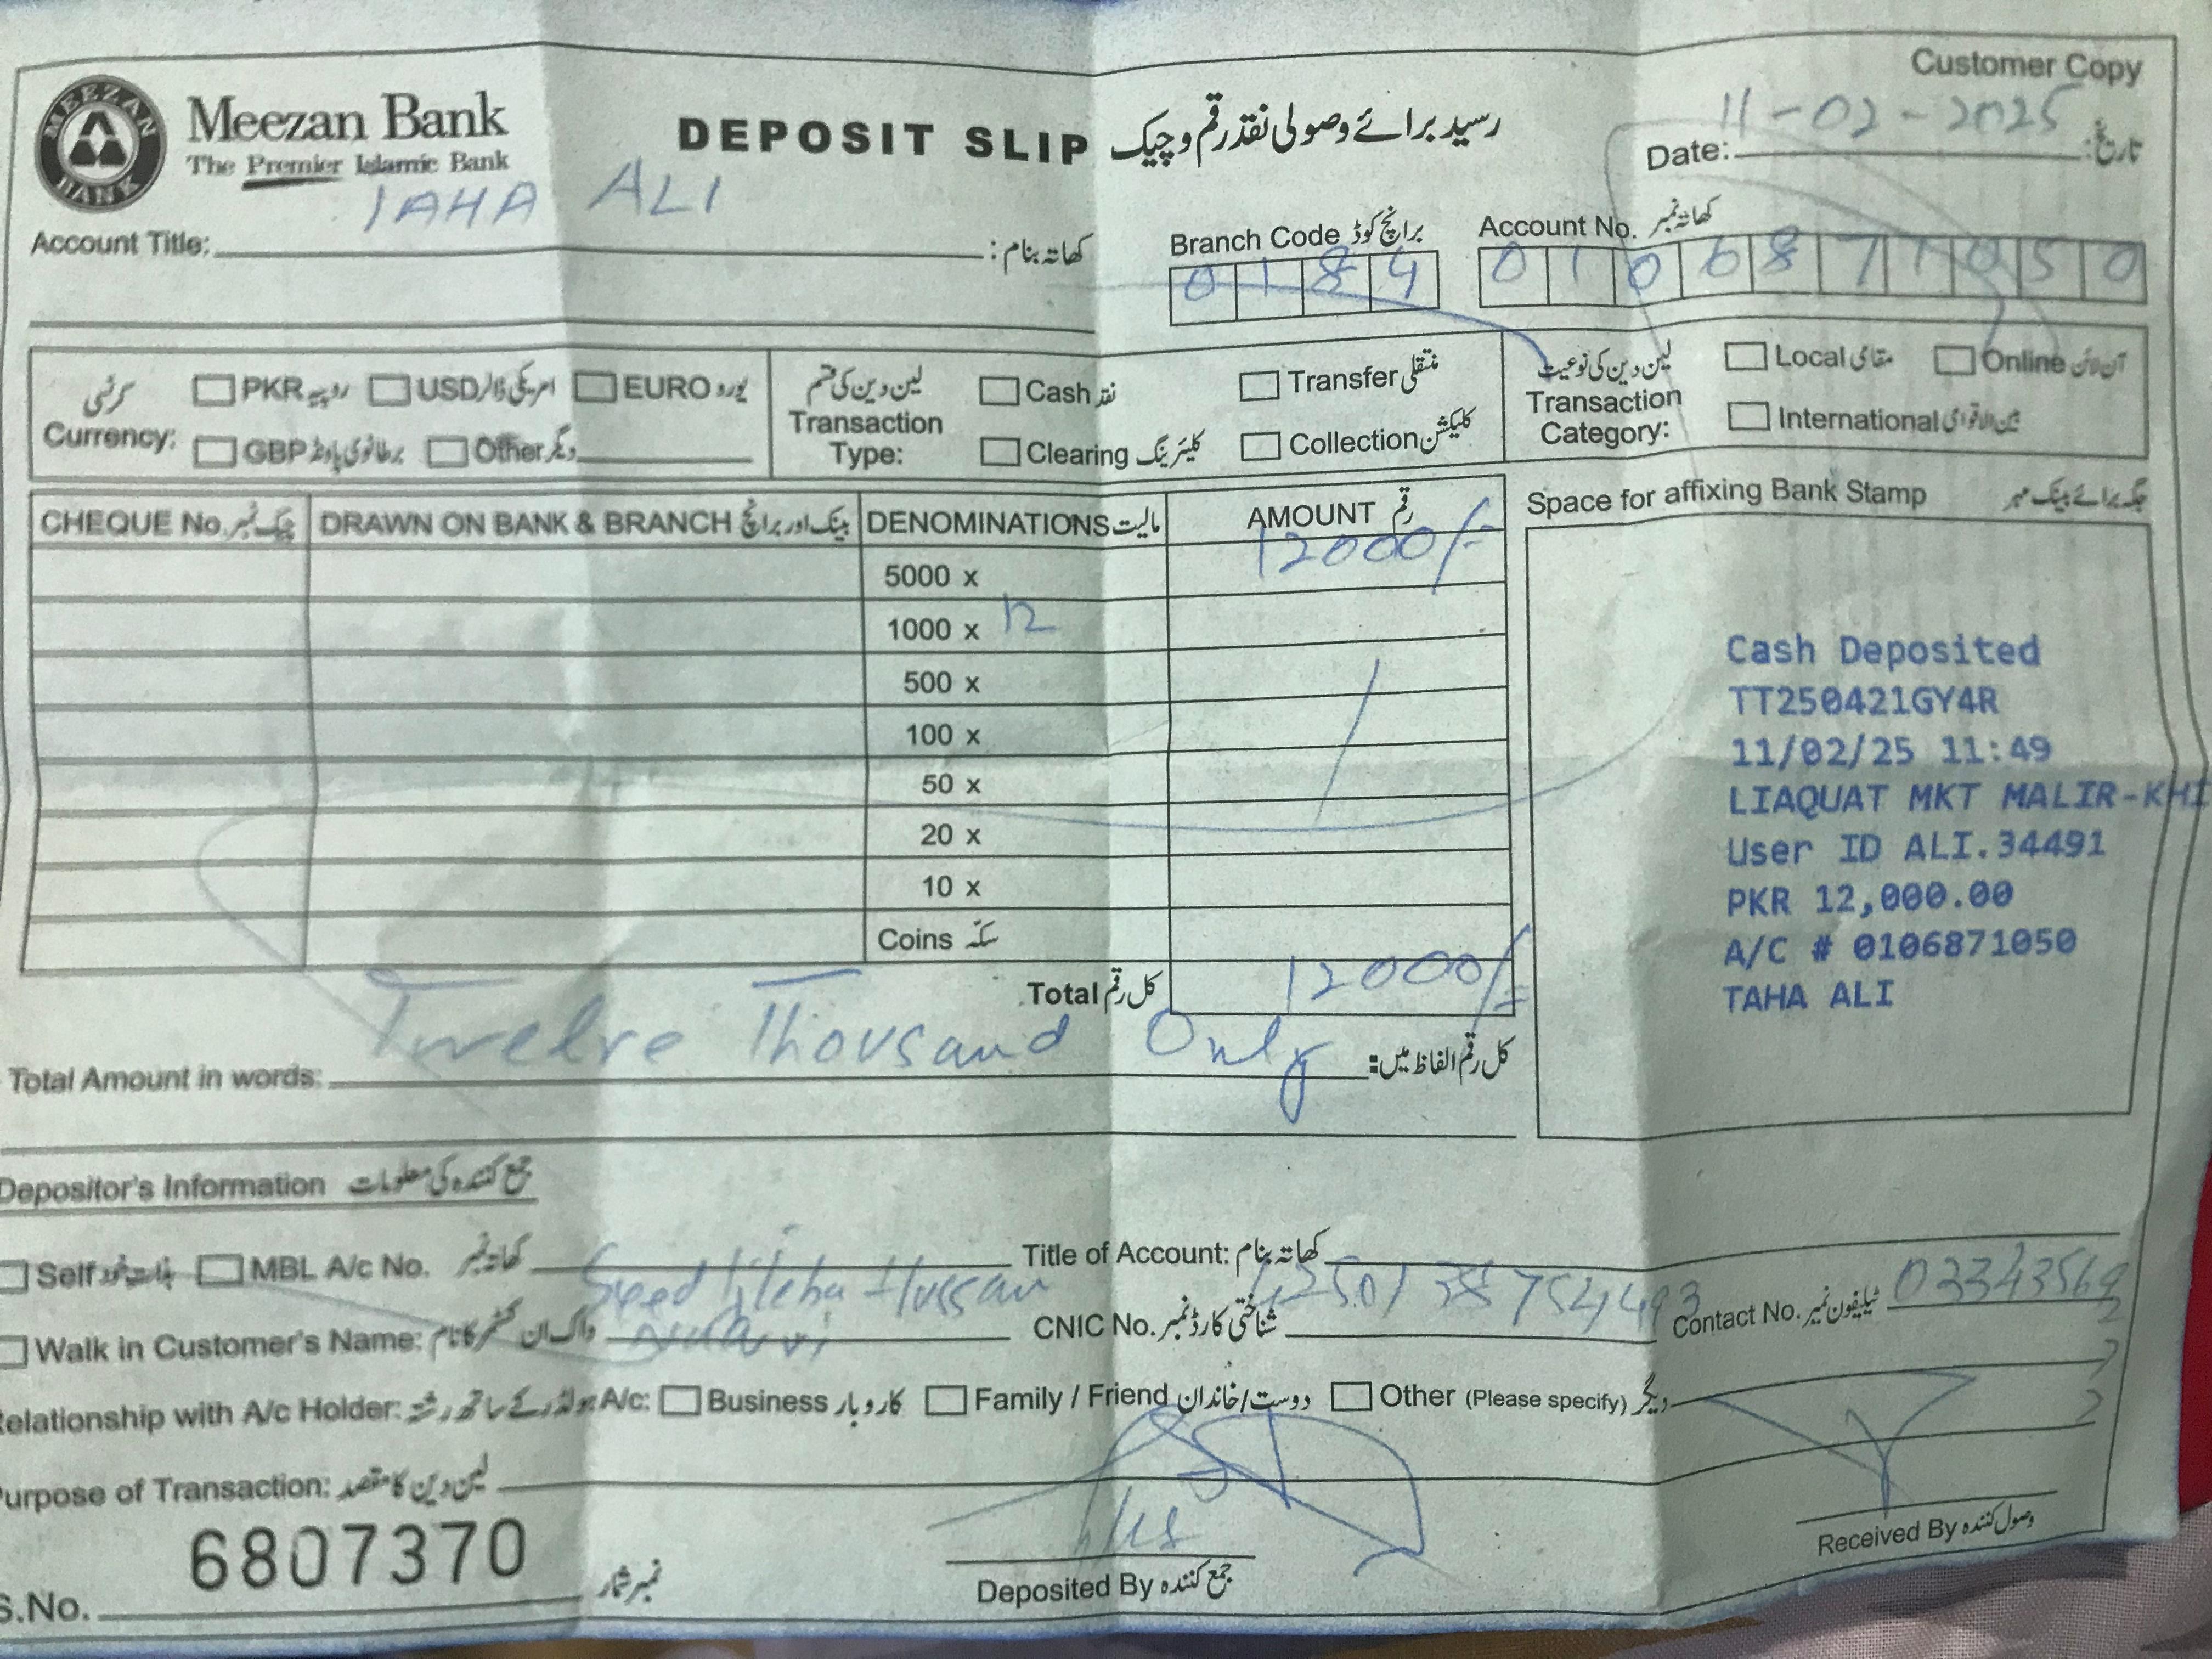 Customer Copy
MEEZAN BANK
Meezan Bank
The Premier Islamic Bank
DEPOSIT SLIP رسید برائے وصولی نقد رقم و چیک
Date: 11-02-2025 تاریخ:
Account Title: TAHA ALI کھاتہ بنام:
Branch Code برانچ کوڈ 0184
Account No. کھاتہ نمبر 0106871050
کرنسی Currency:
PKR روپیہ USD امریکی ڈالر EURO یورو
GBP برطانوی پاؤنڈ Other دیگر
لین دین کی قسم Transaction Type:
Cash نقد Transfer منتقلی
Clearing کلیئرنگ Collection کلیکشن
لین دین کی نوعیت Transaction Category:
Local مقامی Online آن لائن
International بین الاقوامی
CHEQUE No. چیک نمبر DRAWN ON BANK & BRANCH بینک اور برانچ DENOMINATIONS مالیت AMOUNT رقم
12000/-
5000 x
1000 x 12
500 x
100 x
50 x
20 x
10 x
Coins سکہ
Total کل رقم 12000/=
Total Amount in words: Twelve Thousand Only کل رقم الفاظ میں:
Space for affixing Bank Stamp جگہ برائے بینک مہر
Cash Deposited
TT250421GY4R
11/02/25 11:49
LIAQUAT MKT MALIR-KHI
User ID ALI.34491
PKR 12,000.00
A/C # 0106871050
TAHA ALI
Depositor's Information جمع کنندہ کی معلومات
Self بذات خود MBL A/c No. کھاتہ نمبر Title of Account: کھاتہ بنام
Walk in Customer's Name: واک ان کسٹمر کا نام Hussain CNIC No. شناختی کارڈ نمبر Contact No. ٹیلیفون نمبر
Relationship with A/c Holder: ہولڈر کے ساتھ رشتہ A/c: Business کاروبار Family / Friend دوست/خاندان Other (Please specify) دیگر
Purpose of Transaction: لین دین کا مقصد
S.No. 6807370 نمبر شمار
Deposited By جمع کنندہ
Received By وصول کنندہ